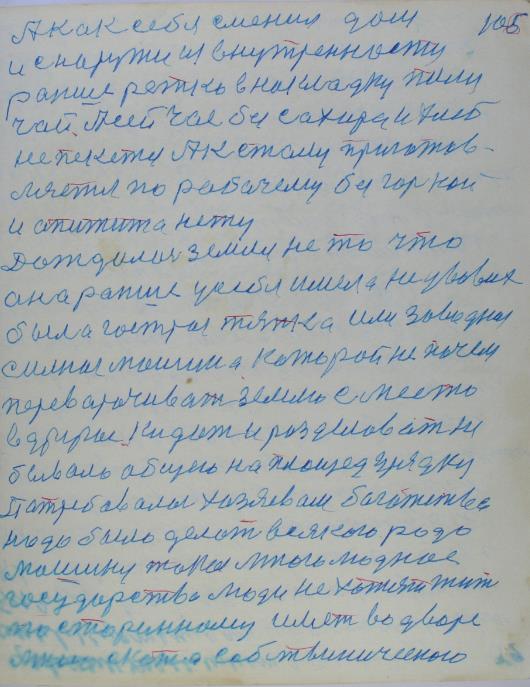 А как себя сменил дом 105
и снаружи и внутренносту
ранше реткь внакладку пили
чай. А сейчас без сахира и хлеб
не пекетя А к етому приготов-
ляетя по рабачему без горкой
и апитита нету
Дождалас земля не то что
она ранше у себя имела не увовах
была гострая тятка или заводная
силная машина каторой не почем
переварочиват землю с место
в другое. Кидат и розделоват не
бывалъ общею на площед грядку
Патребовалос хазяевам багатства
надо было делот всякого родо
машину такая многомадное
государства люди не хотят жит
по старинному имет во дворе
скота собственического